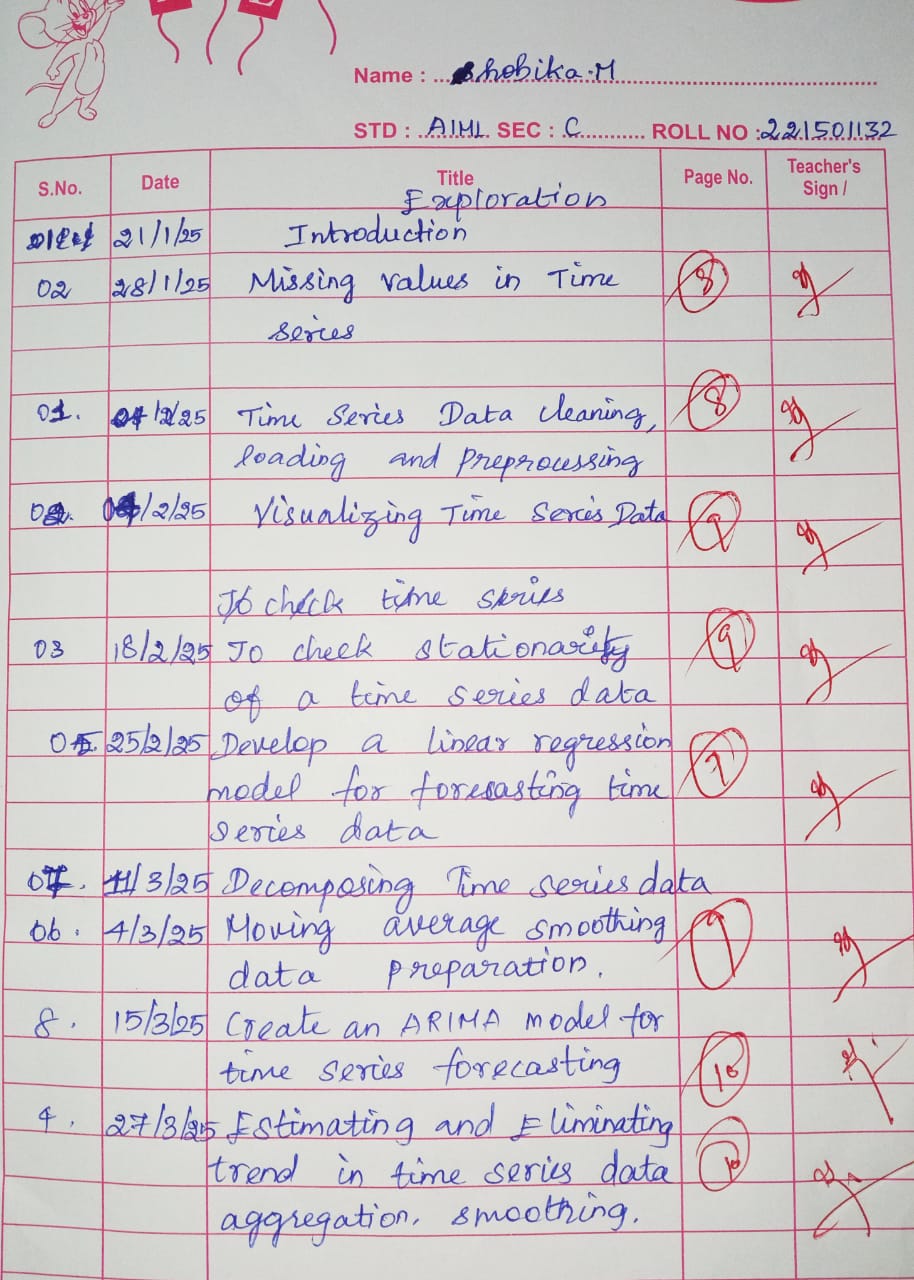 Name : Shobika.M
STD : AIML SEC : C ROLL NO : 221501132
S.No. Date Title Page No. Teacher's Sign /
Exploration
21/1/25 Introduction
02 28/1/25 Missing values in Time 8
series
01. 04/2/25 Time Series Data cleaning, 8
loading and preprocessing
/2/25 Visualizing Time Series Data 9
To check time series
03 18/2/25 To check stationarity 9
of a time series data
05. 25/2/25 Develop a linear regression 9
model for forecasting time
series data
07. 11/3/25 Decomposing Time series data
06. 4/3/25 Moving average smoothing 9
data preparation.
8. 15/3/25 Create an ARIMA model for
time series forecasting 10
4. 27/3/25 Estimating and Eliminating
trend in time series data 10
aggregation, smoothing.